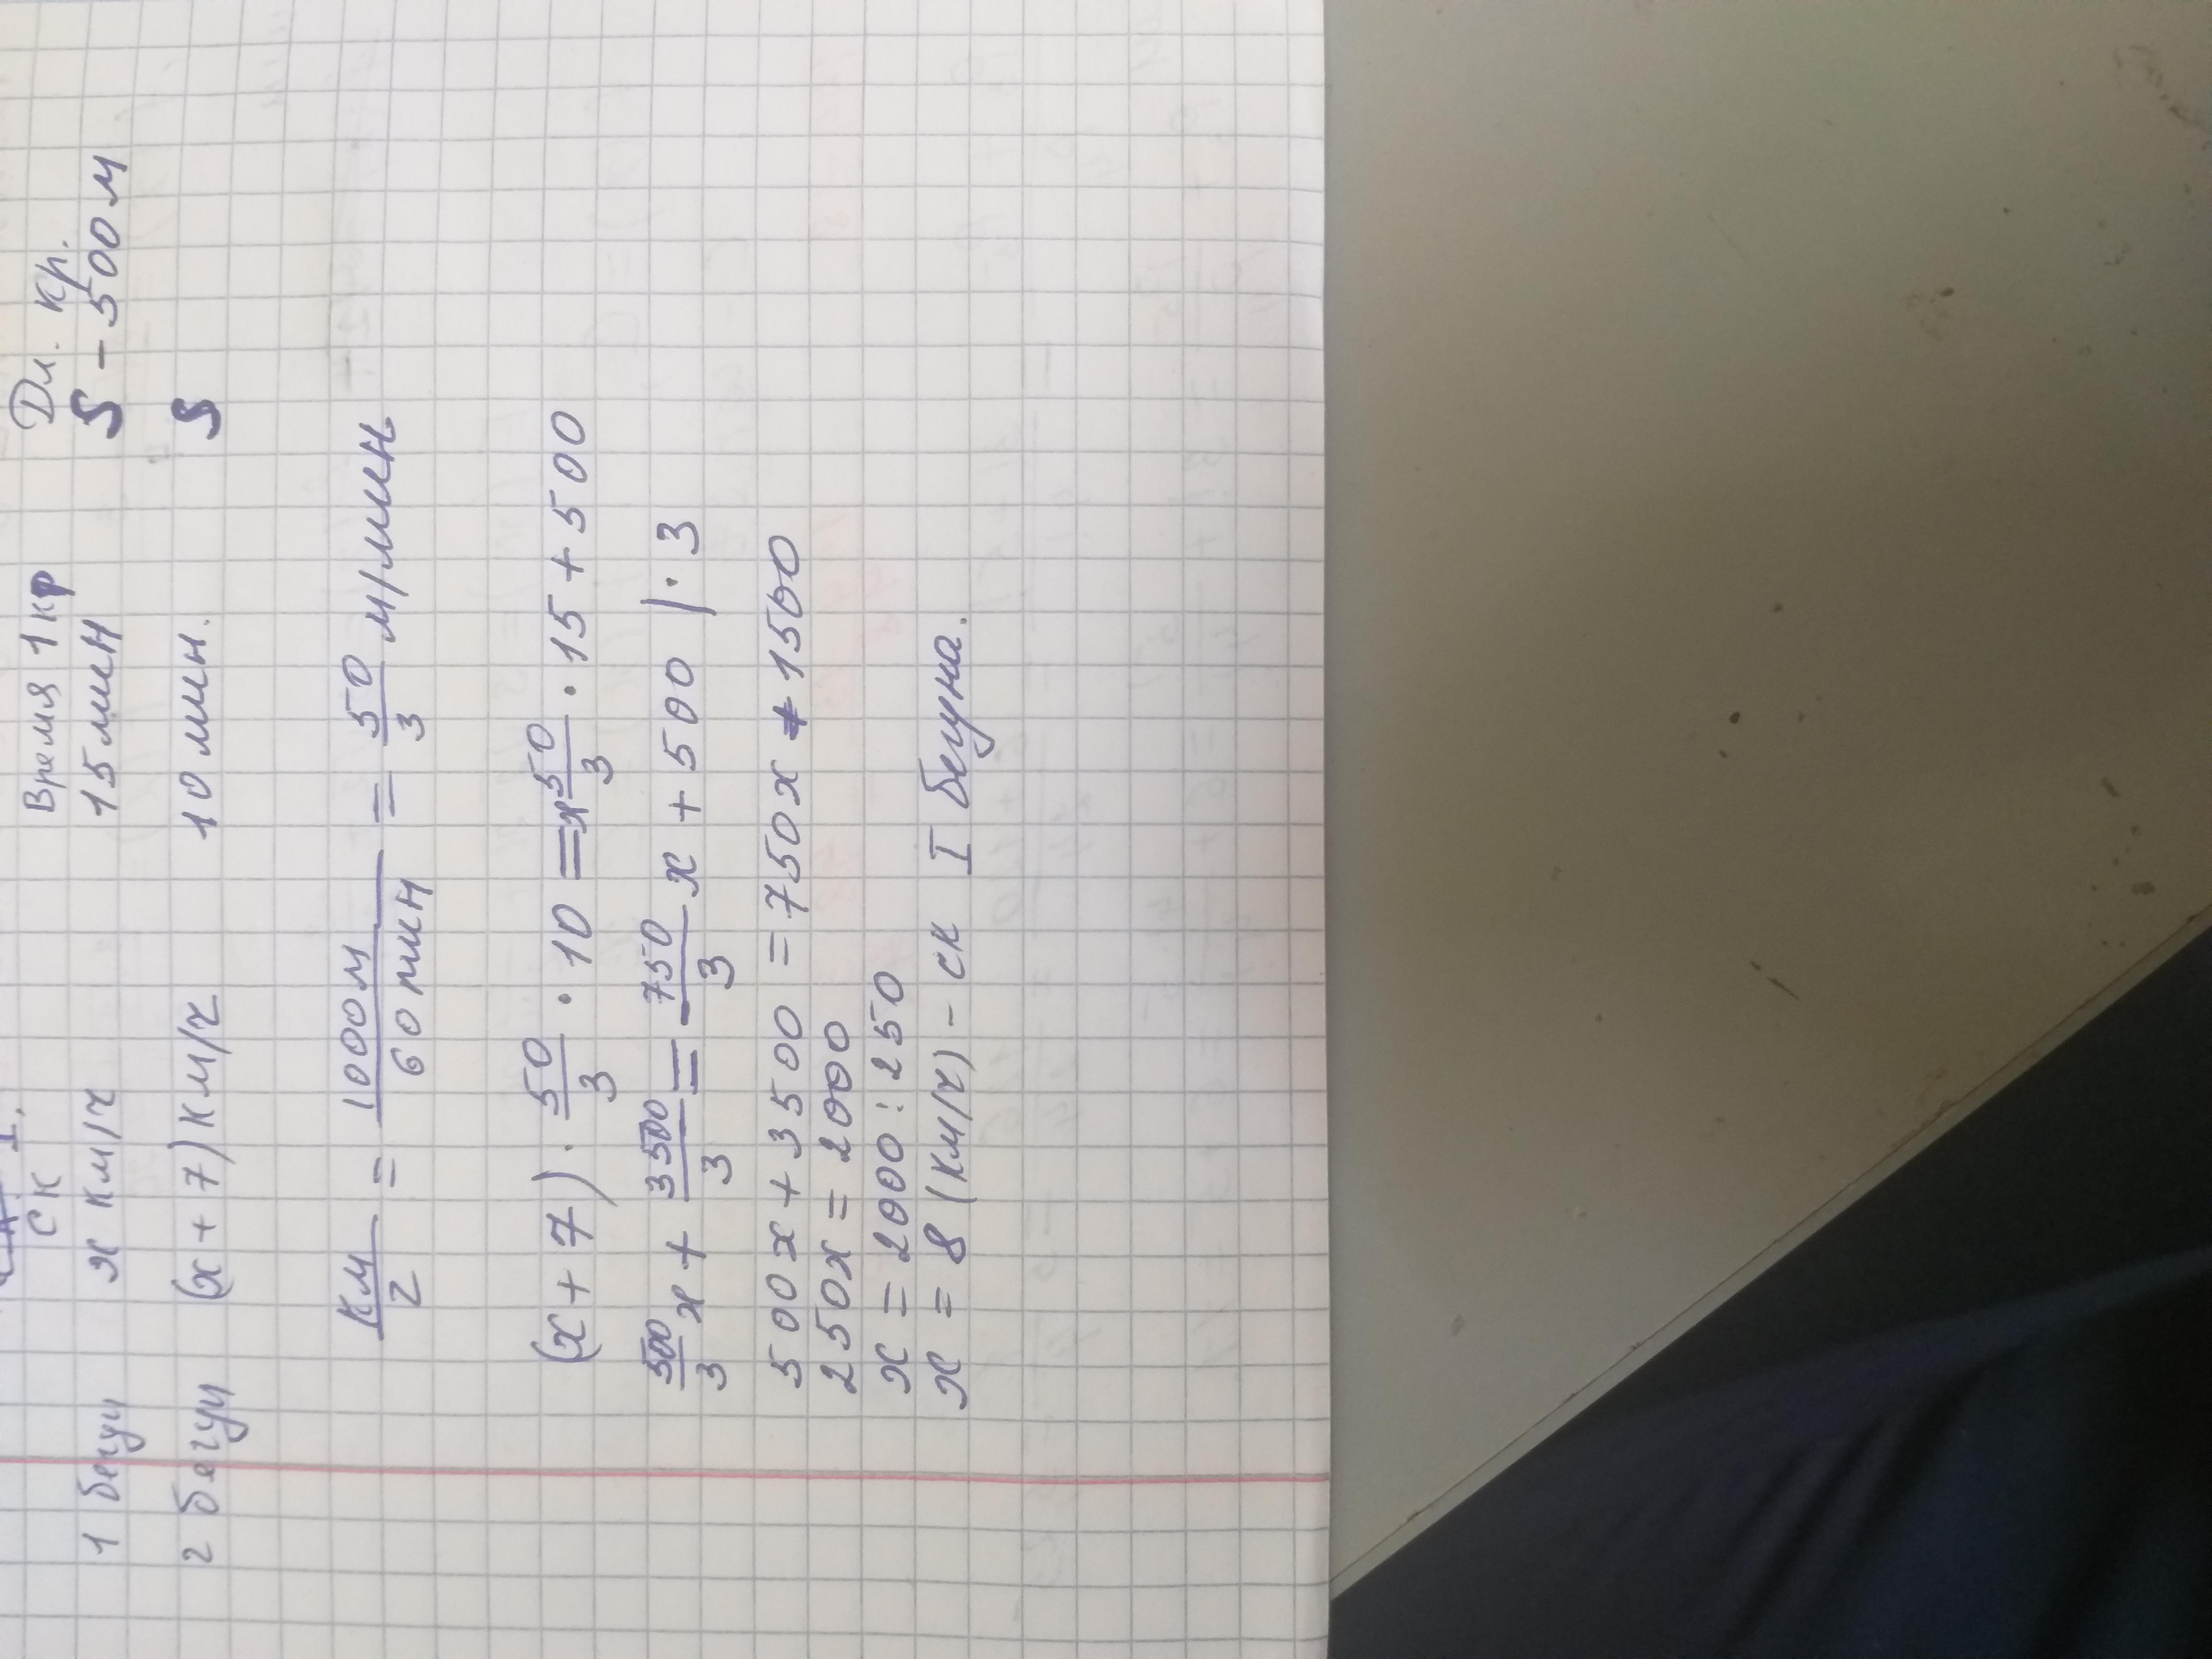 ск Время 1 кр Дл. кр.
1 бегун x км/ч 15 мин S - 500 м
2 бегун (x + 7) км/ч 10 мин. S
км/ч = 1000м/60 мин = 50/3 м/мин
(x + 7) · 50/3 · 10 = x 50/3 · 15 + 500
500/3 x + 3500/3 = 750/3 x + 500 | · 3
500x + 3500 = 750x + 1500
250x = 2000
x = 2000 : 250
x = 8 (км/ч) - ск I бегуна.